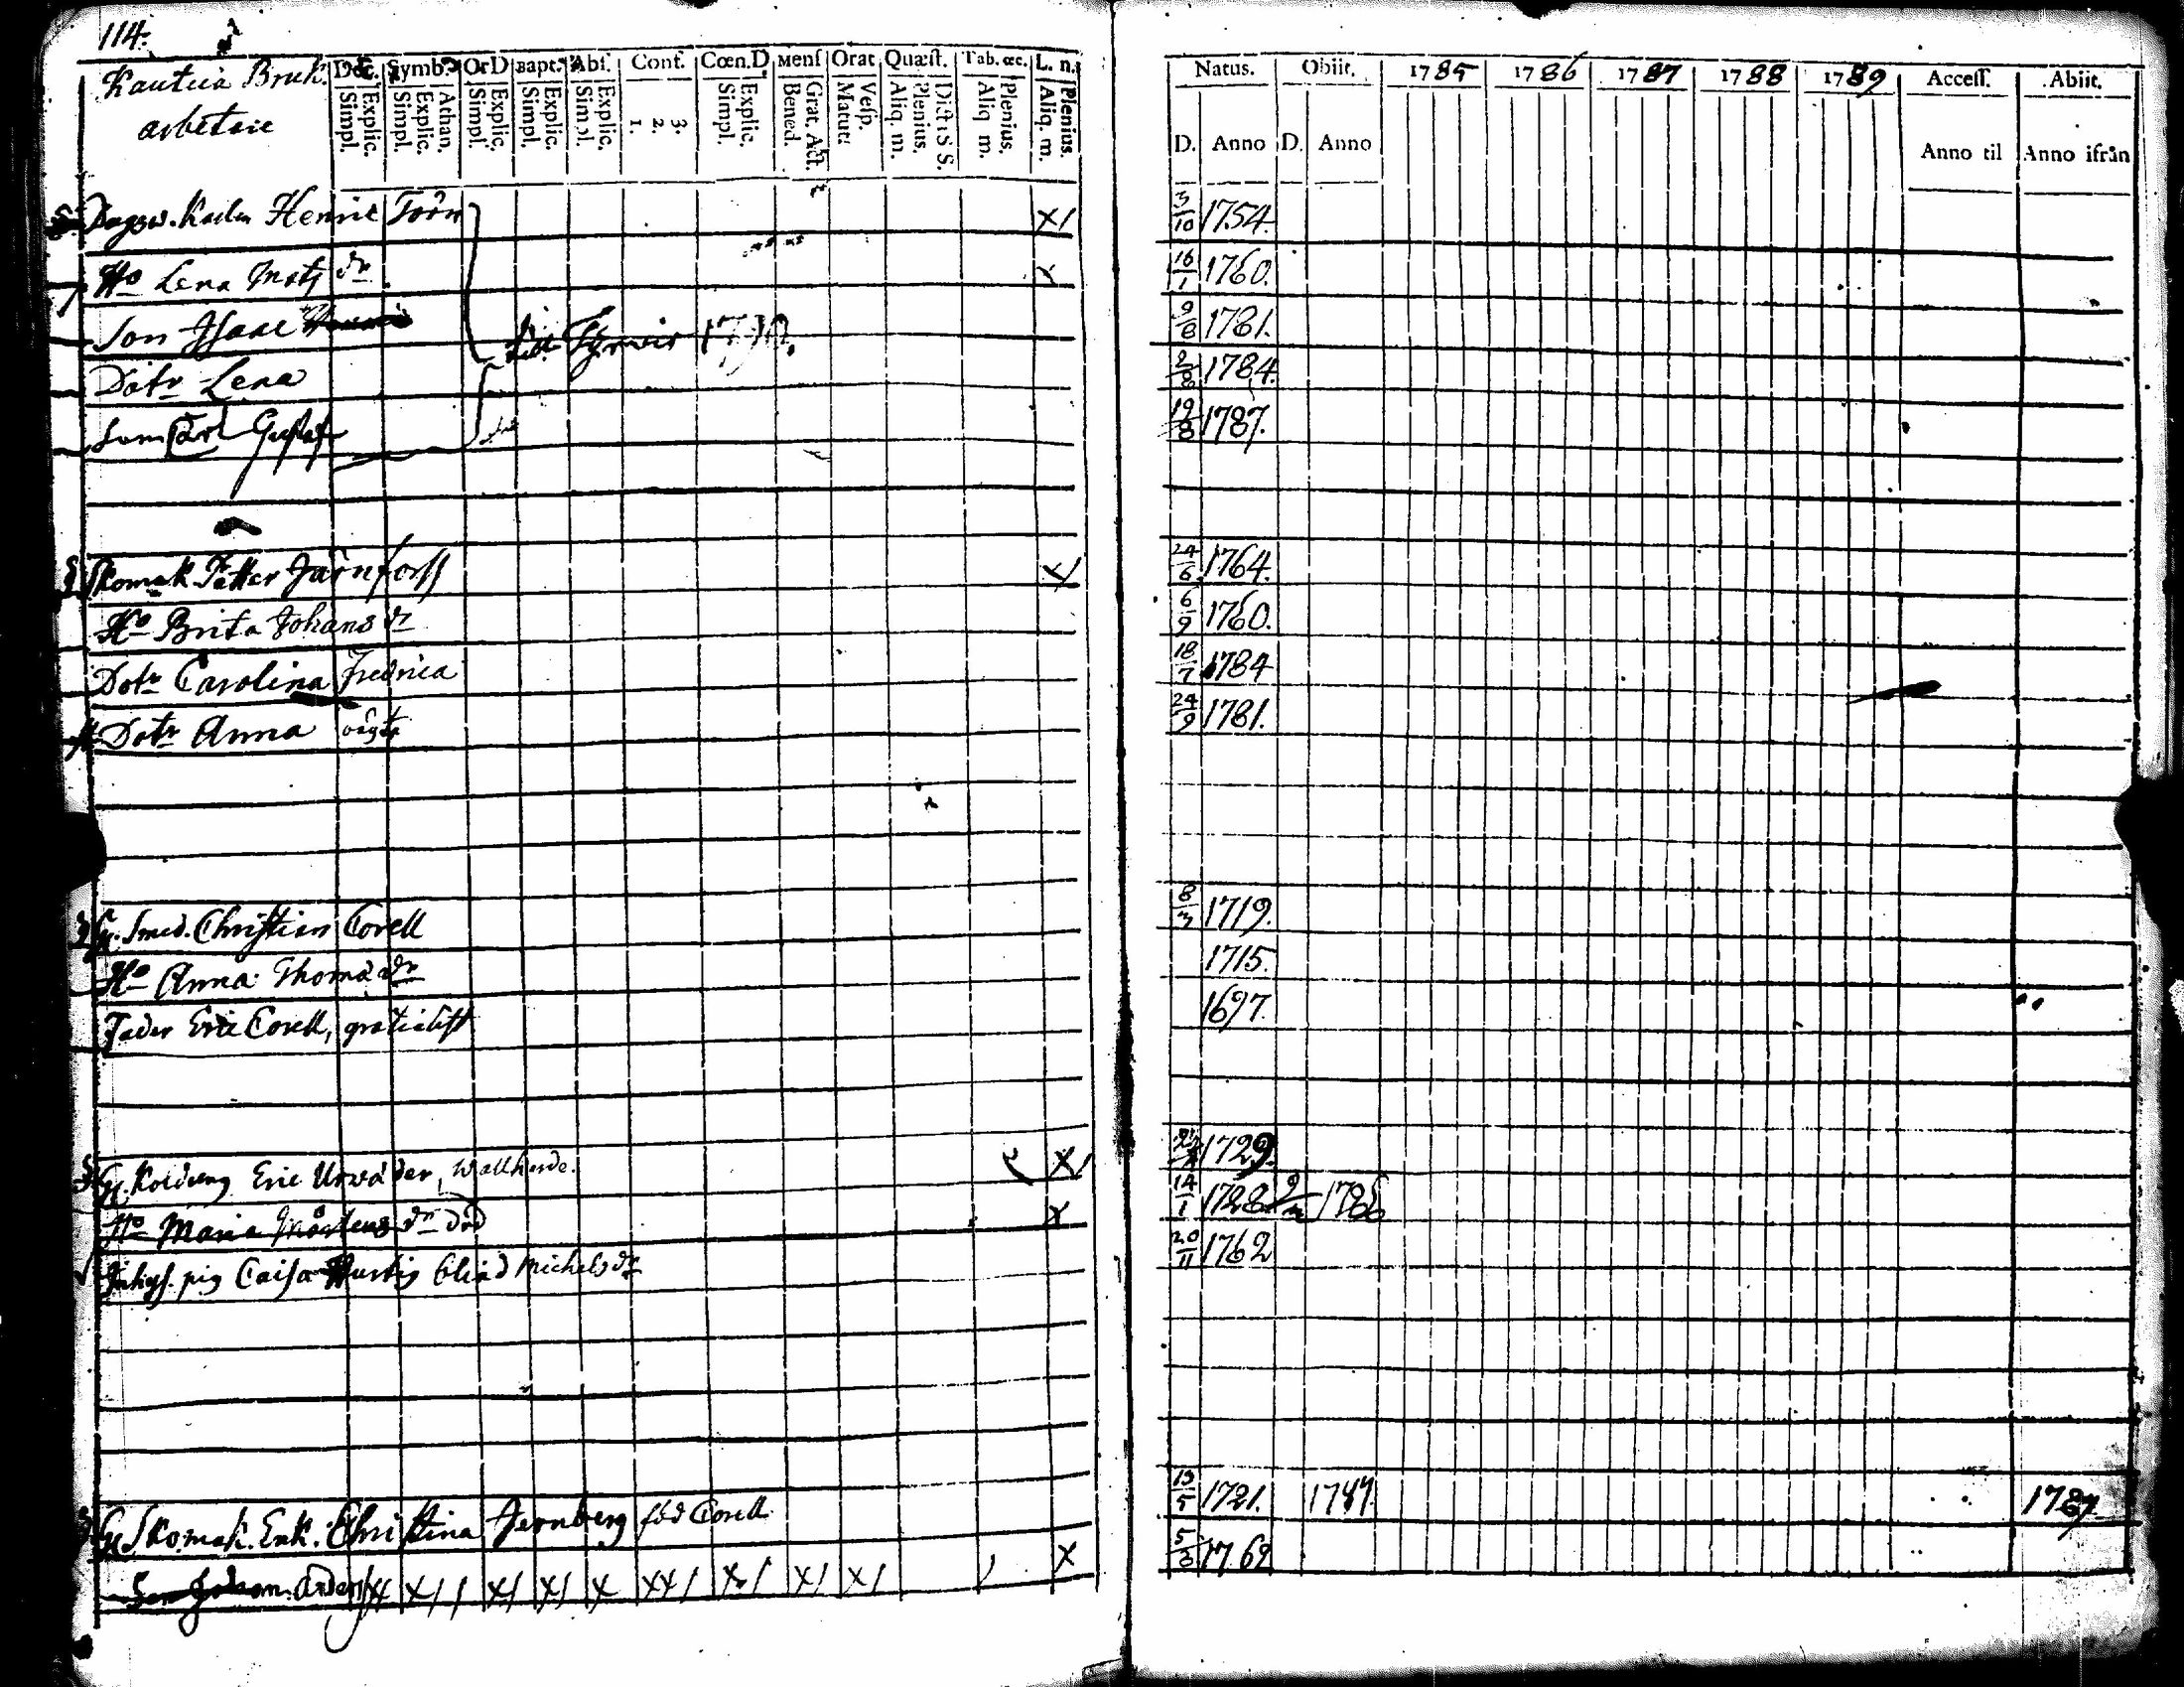 114.
Kautua Bruk.
arbetare
Symb. Or D Bapt. Abs. Conf. Cœn. D. Mens Orat. Quæst. Tab. œc. L. n.
Simpl. Explic. Simpl. Explic. Athan. Simpl. Explic. Simpl. Explic. Simpl. Explic. 1. 2. 3. Simpl. Explic. Bened. Grat. Act. Matut. Vesp. Aliq. m. Plenius. Dictis S. S. Aliq m. Plenius. Aliq. m. Plenius.
Natus. Obiit. 1785 1786 1787 1788 1789 Access. Abiit.
D. Anno D. Anno Anno til Anno ifrån
Henric Törn X/ 3/10 1754.
Ho Lena Mats dr X 16/1 1760.
Son Isaac 9/8 1781.
1790.
Dotr Lena 2/8 1784.
Son Carl Gustaf 19/8 1787.
Skomak Petter Järnforss X/ 24/6 1764.
Ho Brita Johans dr 6/9 1760.
Dotr Carolina Fredrica 18/7 1784
Dotr Anna oägta 24/9 1781.
G. Smed. Christian Corell 8/3 1719.
Ho Anna Thomæ dr 1715.
Fader Eric Corell, gratialist 1697.
G. Koldreng Eric Urväder, Wallherde. X/ 1729.
Ho Maria Mårtens dr död X 14/1 1728 1786
Inhys. pig Caisa Michels dr 20/11 1762
G Skomak. Enk. Christina Jernberg född Corell 19/5 1721. 1787. 1787.
Son Johan. Anders X// X/ X/ X XX/ X/ X/ X/ / X 1769